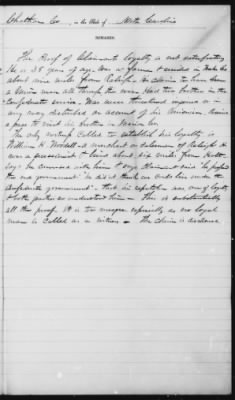 Chatham Co , in the State of North Carolina
REMARKS.
The Proof of Claimants loyalty is not satisfactory
He is 38 years of age. Was a farmer & resided in
about nine miles from Raleigh. He claims to have been
a Union man all through the war. Had two brothers in the
Confederate service. Was never threatened injured or in
any way disturbed on account of his Unionism.
a pass to visit his brother
The only witness called to establish his loyalty is
William H. a merchant or salesman of Raleigh. He
was a & lived about six miles from
He conversed with him & says Claimant said "he preferred
the old government" he did not think we could live under the
Confederate government. That his reputation was one of loyalty
& both parties so understood him. This is substantially
all the proof. It is too meager especially as no loyal
man is called as a witness. The claim is disallowed